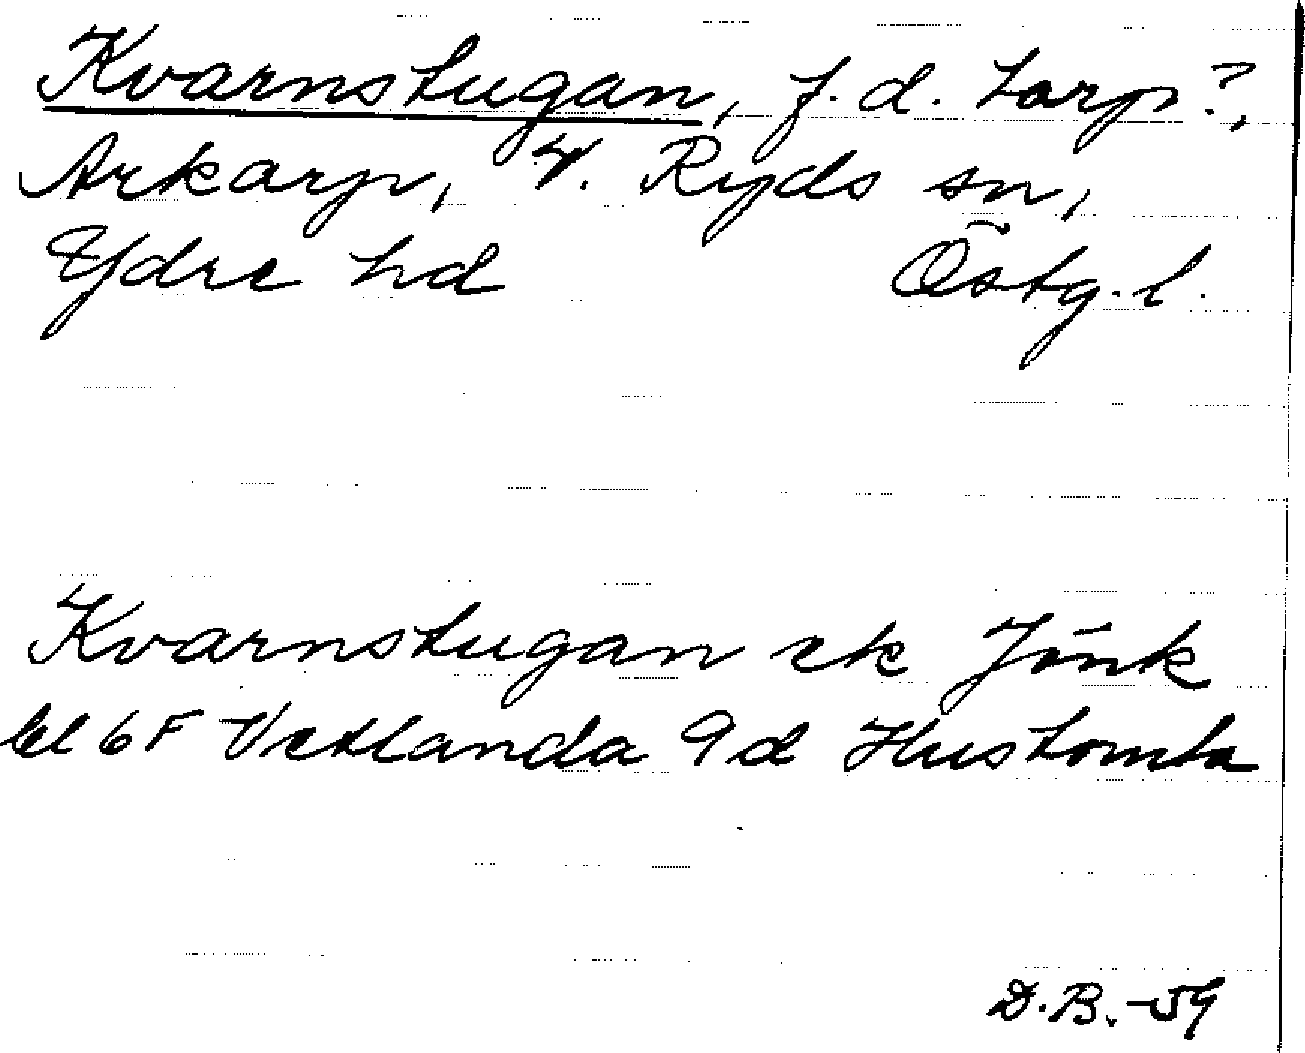 Kvarnstugan, f.d. torp?,
Arkarp, V. Ryds sn,
Ydre hd Östg. l.
Kvarnstugan ek Jönk
bl 6F Vetlanda 9d Hustomta
D.B. -59